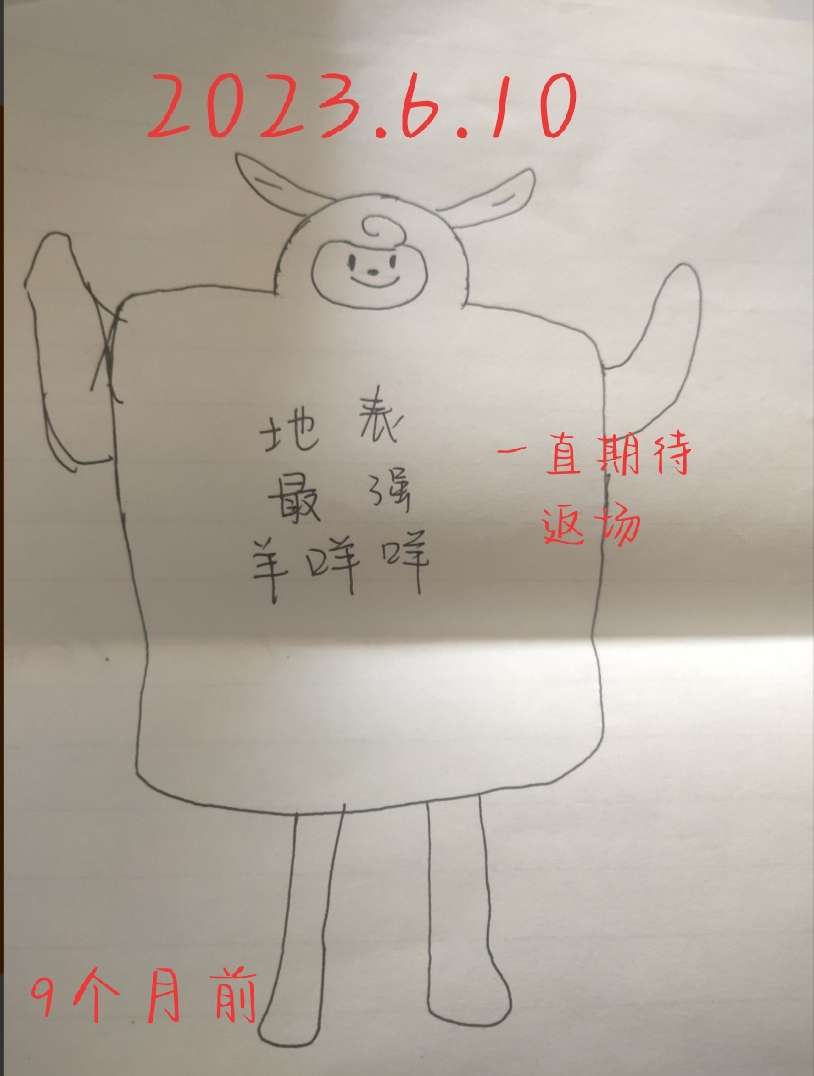 2023.6.10
地表
最强
羊咩咩
一直期待
返场
9个月前